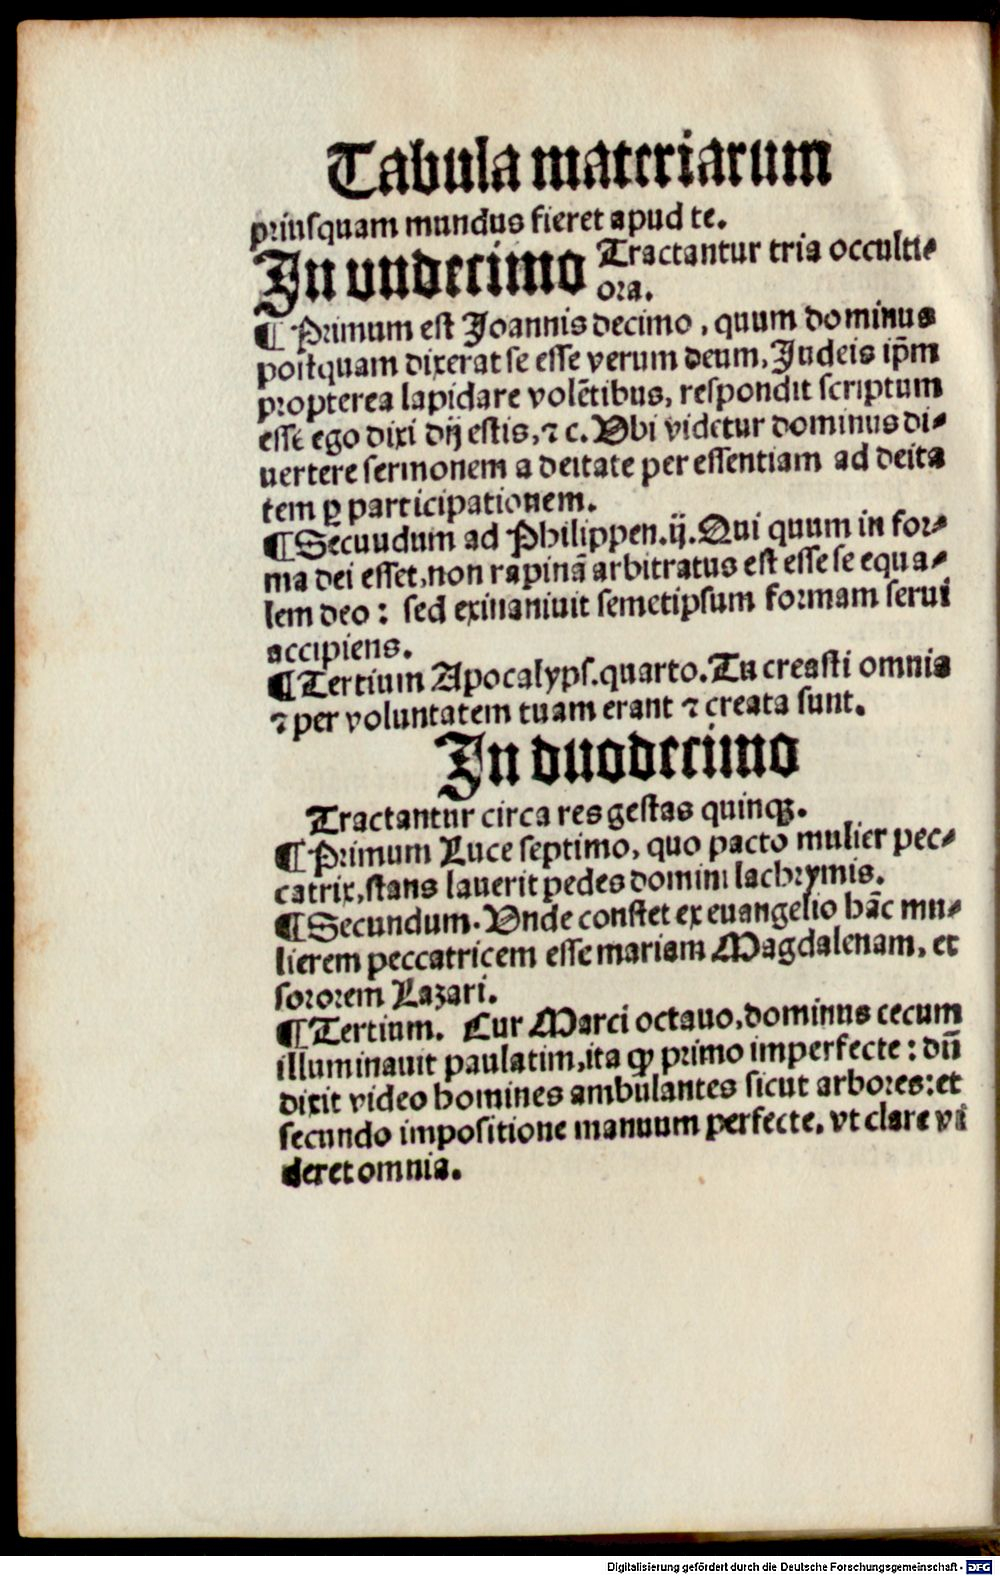 Tabula materiarum
priusquam mundus fieret apud te.
In undecimo Tractantur tria occulti⸗
ora.
¶ Primum est Joannis decimo, quum dominus
postquam dixerat se esse verum deum, Judeis ip̄m
propterea lapidare volētibus, respondit scriptum
esse ego dixi dij estis, ⁊ c. Vbi videtur dominus di⸗
uertere sermonem a deitate per essentiam ad deita
tem ꝑ participationem.
¶ Secuudum ad Philippen. ij. Qui quum in for⸗
ma dei esset, non rapinā arbitratus est esse se equa⸗
lem deo: sed exinaniuit semetipsum formam serui
accipiens.
¶ Tertium Apocalyps. quarto. Tu creasti omnia
⁊ per voluntatem tuam erant ⁊ creata sunt.
In duodecimo
Tractantur circa res gestas quinqꝫ.
¶ Primum Luce septimo, quo pacto mulier pec⸗
catrix, stans lauerit pedes domini lachrymis.
¶ Secundum. Vnde constet ex euangelio hāc mu⸗
lierem peccatricem esse mariam Magdalenam, et
sororem Lazari.
¶ Tertium. Cur Marci octauo, dominus cecum
illuminauit paulatim, ita ꝙ primo imperfecte: dū
dixit video homines ambulantes sicut arbores: et
secundo impositione manuum perfecte, vt clare vi
deret omnia.
Digitalisierung gefördert durch die Deutsche Forschungsgemeinschaft - DFG